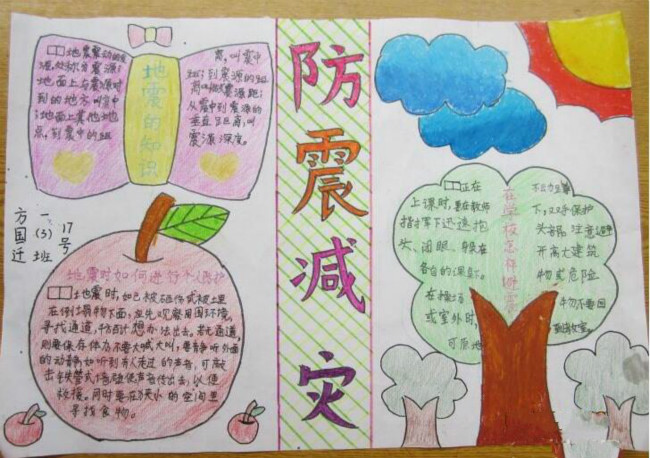 防震减灾
地震的知识
地震震动的发
源处称为震源;
地面上与震源对
到的地方,叫震中
地面上其他地
点,到震中的距
离,叫震中
到震源的距
震源距;
从震中到震源的
垂直距离,叫
震源深度。
一(3)班
17号
方国迁
地震时如何进行个人保护
地震时,如已被砸伤或被埋
在倒塌物下面,应先观察周围环境,
寻找通道,千方百计想办法出去。若无通道,
则要保存体力不要大喊大叫,要静听外面
的动静,如听到有人走过的声音,可敲
击铁管或墙壁使声音传出去,以便
救援。同时要在
寻找食物。
在学校怎样避震
正在
上课时,要在教师
指挥下迅速抱
头、闭眼、身躲在
各自的课桌下。
在操场
或室外时,
可原地
不动蹲
下,双手保护
头部 注意避
开高大建筑
物或危险
物不要回
教室。